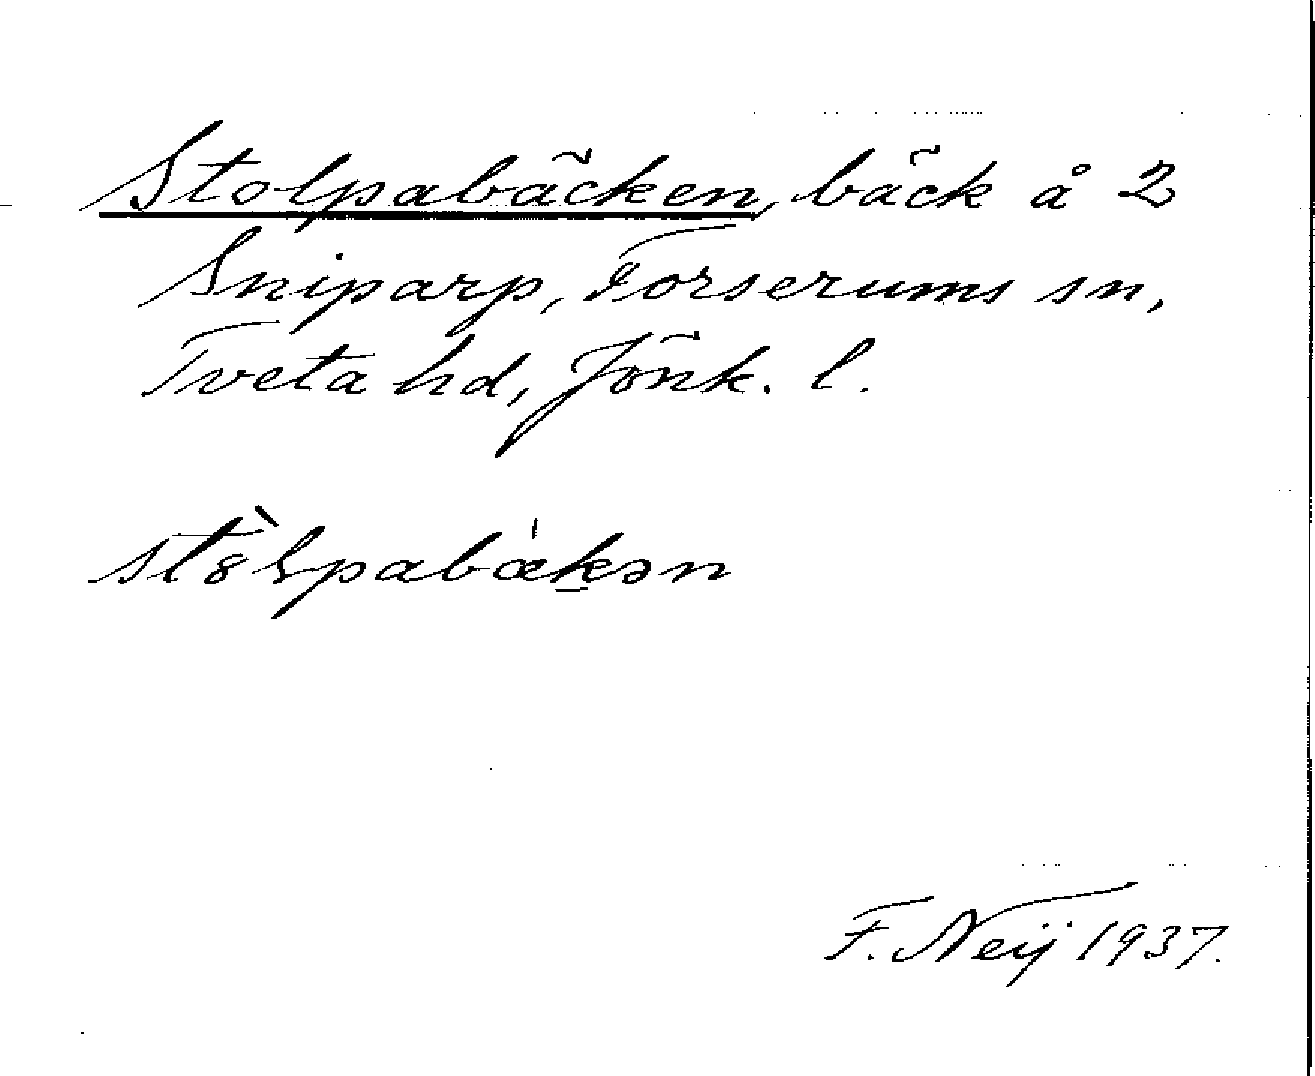 Stolpabäcken, bäck å 2
Sniparp, Forserums sn,
Tveta hd, Jönk. l.
F. Neij 1937.